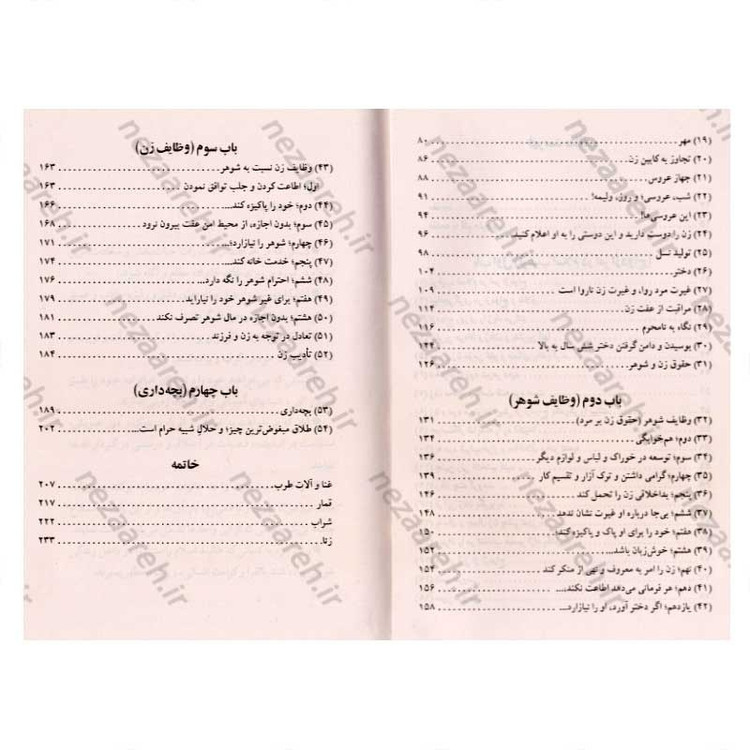 (۱۹) مهر ... ۸۰
(۲۰) تجاوز به کابین زن ... ۸۶
(۲۱) جهاز عروس ... ۸۸
(۲۲) شب، عروسی؛ و روز، ولیمه! ... ۹۱
(۲۳) این عروسی‌ها! ... ۹۴
(۲۴) زن را دوست دارید و این دوستی را به او اعلام کنید ... ۹۶
(۲۵) تولید نسل ... ۹۸
(۲۶) دختر ... ۱۰۴
(۲۷) غیرت مرد روا، و غیرت زن ناروا است ... ۱۰۹
(۲۸) مراقبت از عفت زن ... ۱۱۴
(۲۹) نگاه به نامحرم ... ۱۱۶
(۳۰) بوسیدن و دامن گرفتن دختر شش سال به بالا ... ۱۲۴
(۳۱) حقوق زن و شوهر ... ۱۲۶
باب دوم (وظایف شوهر)
(۳۲) وظایف شوهر (حقوق زن بر مرد) ... ۱۳۱
(۳۳) دوم؛ هم‌خوابگی ... ۱۳۴
(۳۴) سوم؛ توسعه در خوراک و لباس و لوازم دیگر ... ۱۳۶
(۳۵) چهارم؛ گرامی داشتن و ترک آزار و تقسیم کار ... ۱۳۹
(۳۶) پنجم؛ بداخلاقی زن را تحمل کند ... ۱۴۶
(۳۷) ششم؛ بی‌جا درباره او غیرت نشان ندهد ... ۱۴۸
(۳۸) هفتم؛ خود را برای او پاک و پاکیزه کند؛ ... ۱۵۰
(۳۹) هشتم؛ خوش‌زبان باشد ... ۱۵۲
(۴۰) نهم؛ زن را امر به معروف و نهی از منکر کند ... ۱۵۴
(۴۱) دهم؛ هر فرمانی می‌دهد اطاعت نکند؛ ... ۱۵۶
(۴۲) یازدهم؛ اگر دختر آورد، او را نیازارد ... ۱۵۸
باب سوم (وظایف زن)
(۴۳) وظایف زن نسبت به شوهر ... ۱۶۳
اول؛ اطاعت کردن و جلب توافق نمودن ... ۱۶۳
(۴۴) دوم؛ خود را پاکیزه کند ... ۱۶۶
(۴۵) سوم؛ بدون اجازه، از محیط امن عفت بیرون نرود ... ۱۶۸
(۴۶) چهارم؛ شوهر را نیازارد؛ ... ۱۷۱
(۴۷) پنجم؛ خدمت خانه کند ... ۱۷۴
(۴۸) ششم؛ احترام شوهر را نگه دارد ... ۱۷۶
(۴۹) هفتم؛ برای غیر شوهر خود را نیاراید ... ۱۷۹
(۵۰) هشتم؛ بدون اجازه در مال شوهر تصرف نکند ... ۱۸۱
(۵۱) تعادل در توجه به زن و فرزند ... ۱۸۳
(۵۲) تأدیب زن ... ۱۸۴
باب چهارم (بچه‌داری)
(۵۳) بچه‌داری ... ۱۸۹
(۵۴) طلاق مبغوض‌ترین چیز؛ و حلالِ شبیه حرام است ... ۲۰۲
خاتمه
غنا و آلات طرب ... ۲۰۷
قمار ... ۲۱۷
شراب ... ۲۲۲
زنا ... ۲۳۳
nezaareh.ir